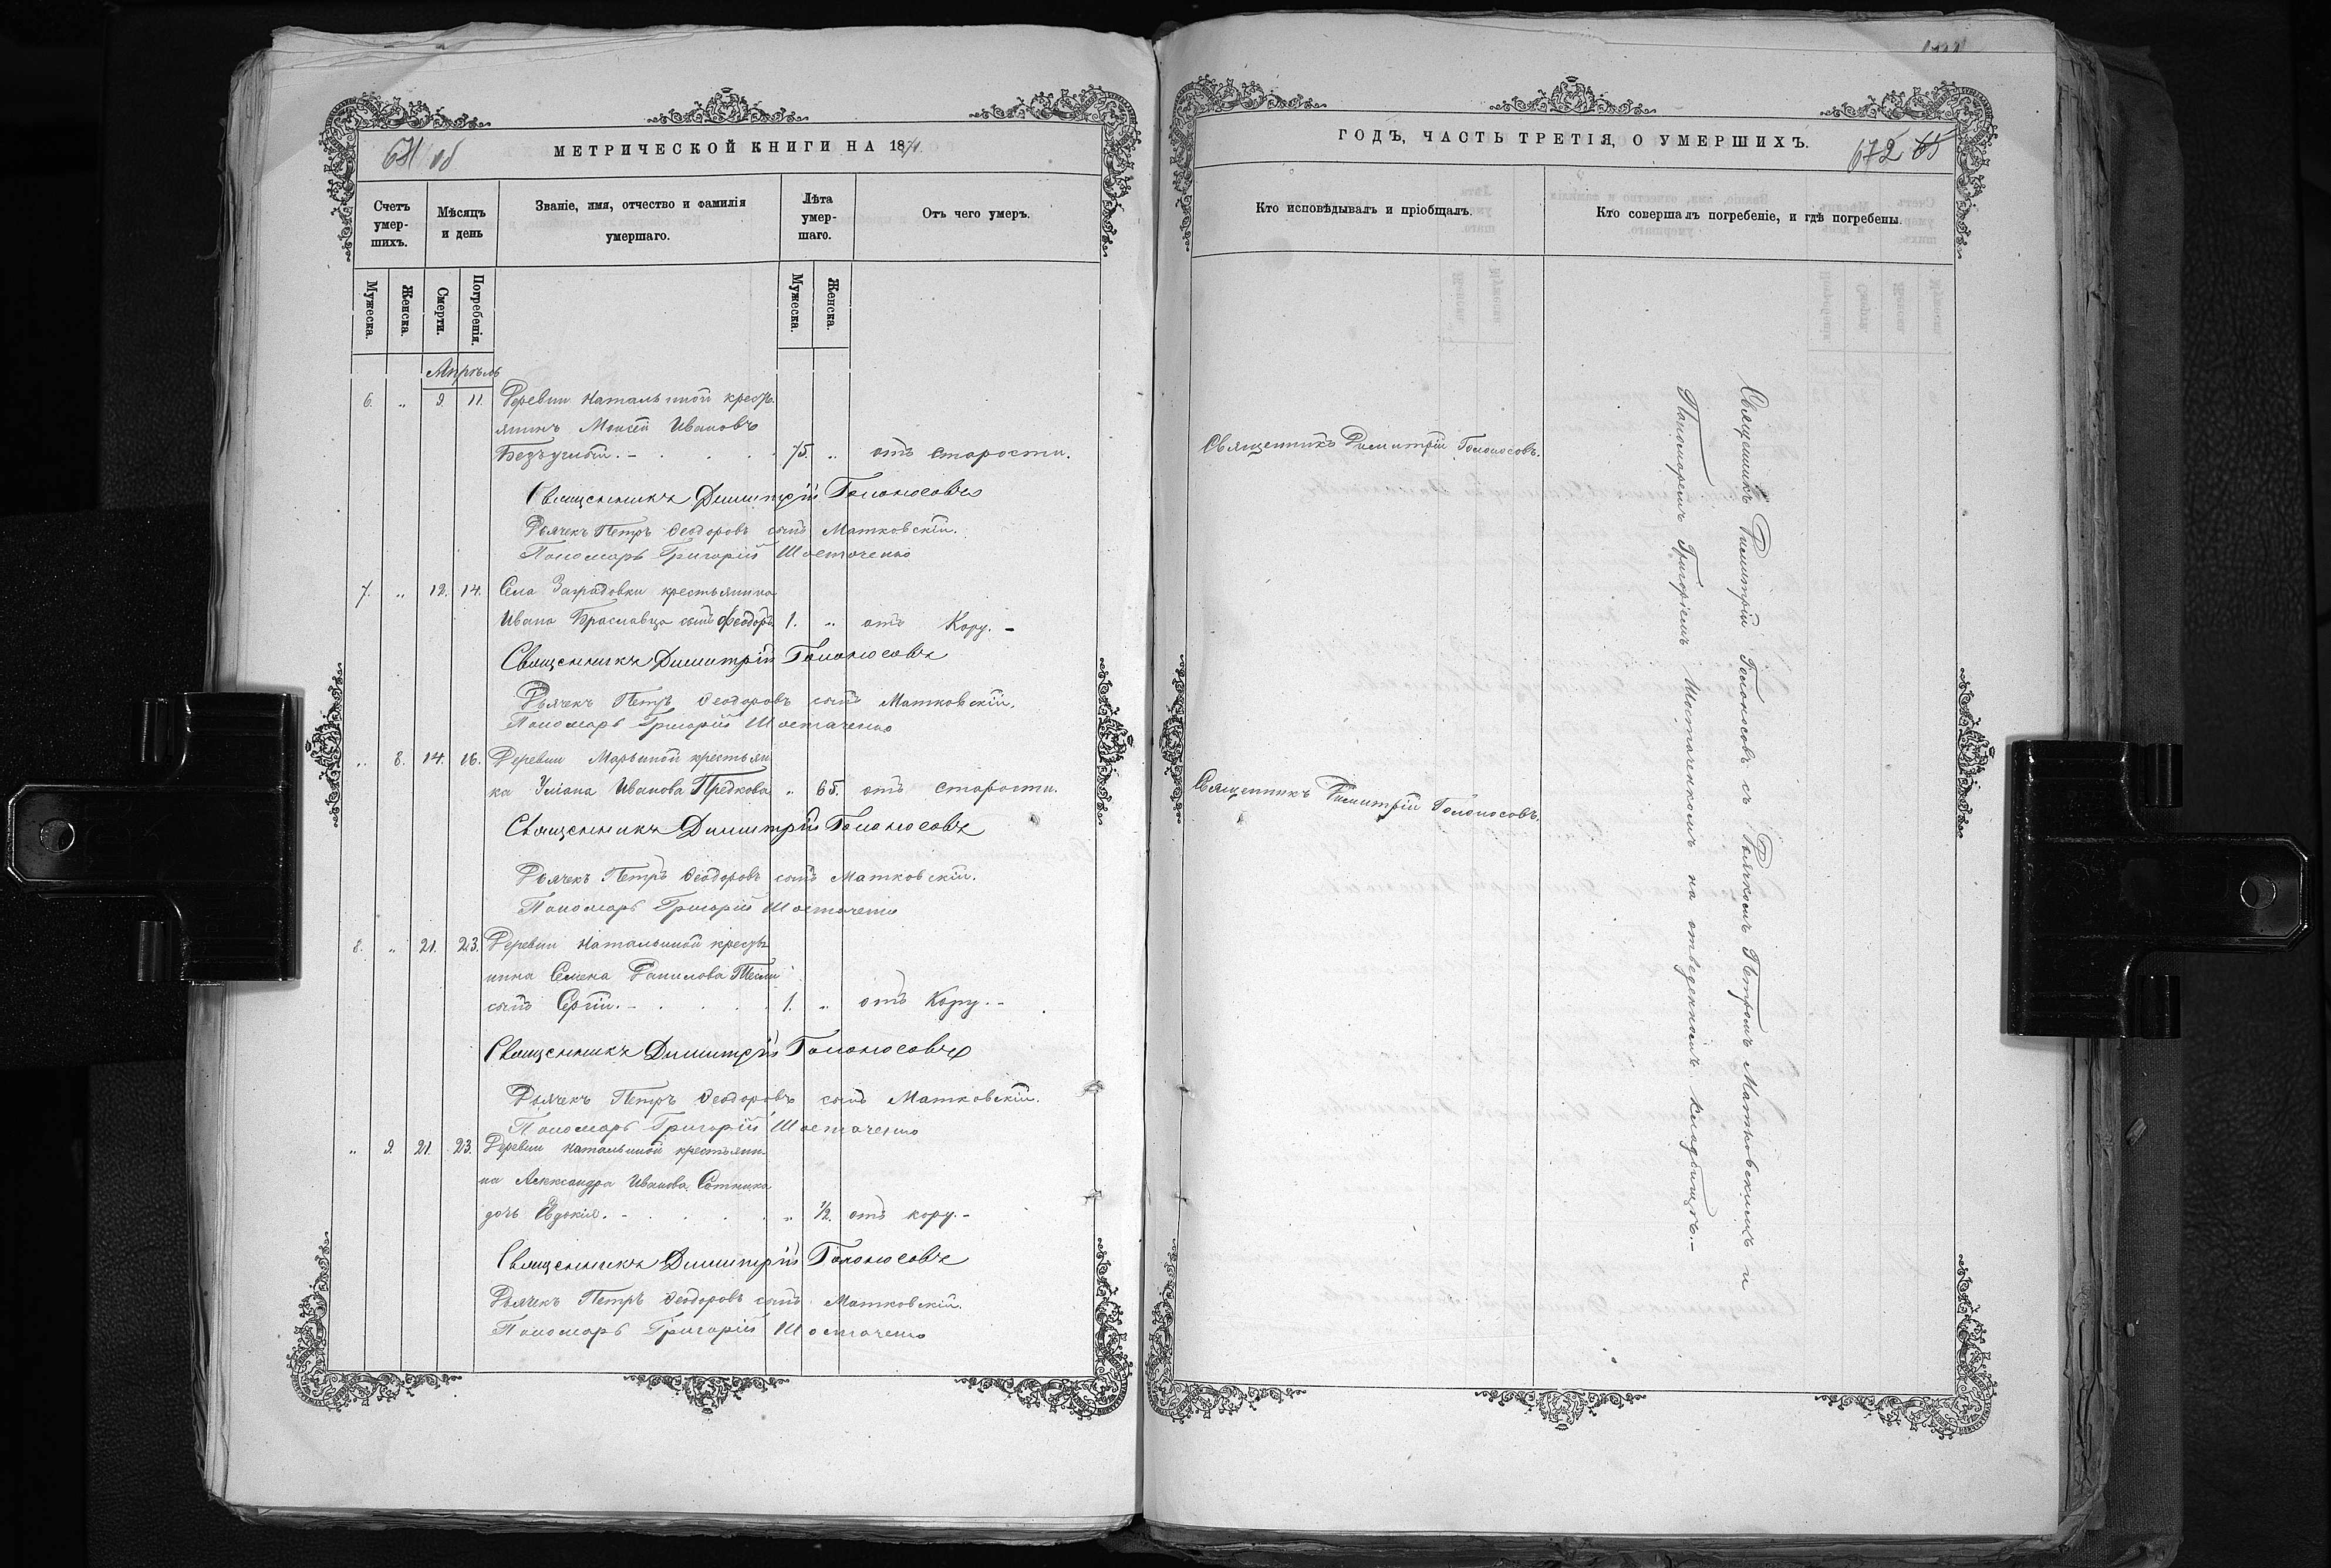 МЕТРИЧЕСКОЙ КНИГИ НА 1871
Счетъ умер-шихъ.
Мѣсяцъ и день
Званіе, имя, отчество и фамилія умершаго.
Лѣта умер-шаго.
Отъ чего умеръ.
Мужеска.
Женска.
Смерти.
Погребенія.
Мужеска.
Женска.
Апрѣль
6. „ 9. 11. Деревни Натальиной кресть
янинъ Моисей Ивановъ
Безъуглый. - 75. „ отъ старости.
Священникъ Димитрій Голоносовъ
Дьячекъ Петръ Феодоровъ сынъ Матковскій.
Пономарь Григорій Шостаченко
7. „ 12. 14. Села Заградовки крестьянина
Ивана Браславца сынъ Феодоръ 1. „ отъ Кору. -
Священникъ Димитрій Голоносовъ
Дьячекъ Петръ Феодоровъ сынъ Матковскій.
Пономарь Григорій Шостаченко
„ 8. 14. 16. Деревни Марьиной крестьян
ка Уліана Иванова Предкова „ 65. отъ старости.
Священникъ Димитрій Голоносовъ
Дьячекъ Петръ Феодоровъ сынъ Матковскій.
Пономарь Григорій Шостаченко
8. „ 21. 23. Деревни Натальиной крестья
нина Семена Данилова
сынъ Сергій. - 1. „ отъ Кору. -
Священникъ Димитрій Голоносовъ
Дьячекъ Петръ Феодоровъ сынъ Матковскій.
Пономарь Григорій Шостаченко
„ 9. 21. 23. Деревни Натальиной крестьяни
на Александра Иванова Сотника
дочь Евдокія. - „ 1/2. отъ кору. -
Священникъ Димитрій Голоносовъ
Дьячекъ Петръ Феодоровъ сынъ Матковскій.
Пономарь Григорій Шостаченко
ГОДЪ, ЧАСТЬ ТРЕТІЯ, О УМЕРШИХЪ.
672 65
Кто исповѣдывалъ и пріобщалъ.
Кто совершалъ погребеніе, и гдѣ погребены.
Священникъ Димитрій Голоносовъ.
Священникъ Димитрій Голоносовъ.
Священникъ Димитрій Голоносовъ съ Дьячкомъ Петромъ Матковскимъ и
Пономаремъ Григоріемъ Шостаченкомъ на отведенномъ кладбищѣ. -